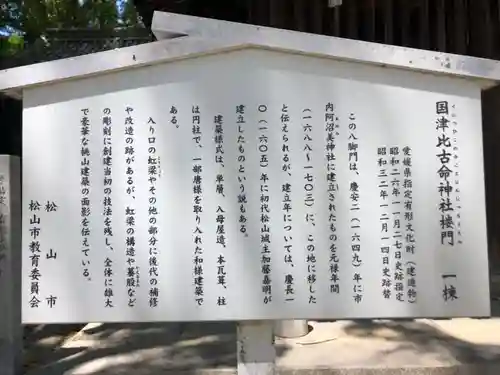 国津比古命神社楼門 一棟
愛媛県指定有形文化財（建造物）
昭和二六年一一月二七日史跡指定
昭和三二年一二月一四日史跡替
この八脚門は、慶安二（一六四九）年に市
内阿沼美神社に建立されたものを元禄年間
（一六八八～一七〇三）に、この地に移した
と伝えられるが、建立年については、慶長一
〇（一六〇五）年に初代松山城主加藤嘉明が
建立したものという説もある。
建築様式は、単層、入母屋造、本瓦葺、柱
は円柱で、一部唐様を取り入れた和様建築で
ある。
入り口の虹梁やその他の部分に後代の補修
や改造の跡があるが、虹梁の構造や蟇股など
の彫刻に創建当初の技法を残し、全体に雄大
で豪華な桃山建築の面影を伝えている。
松山市
松山市教育委員会